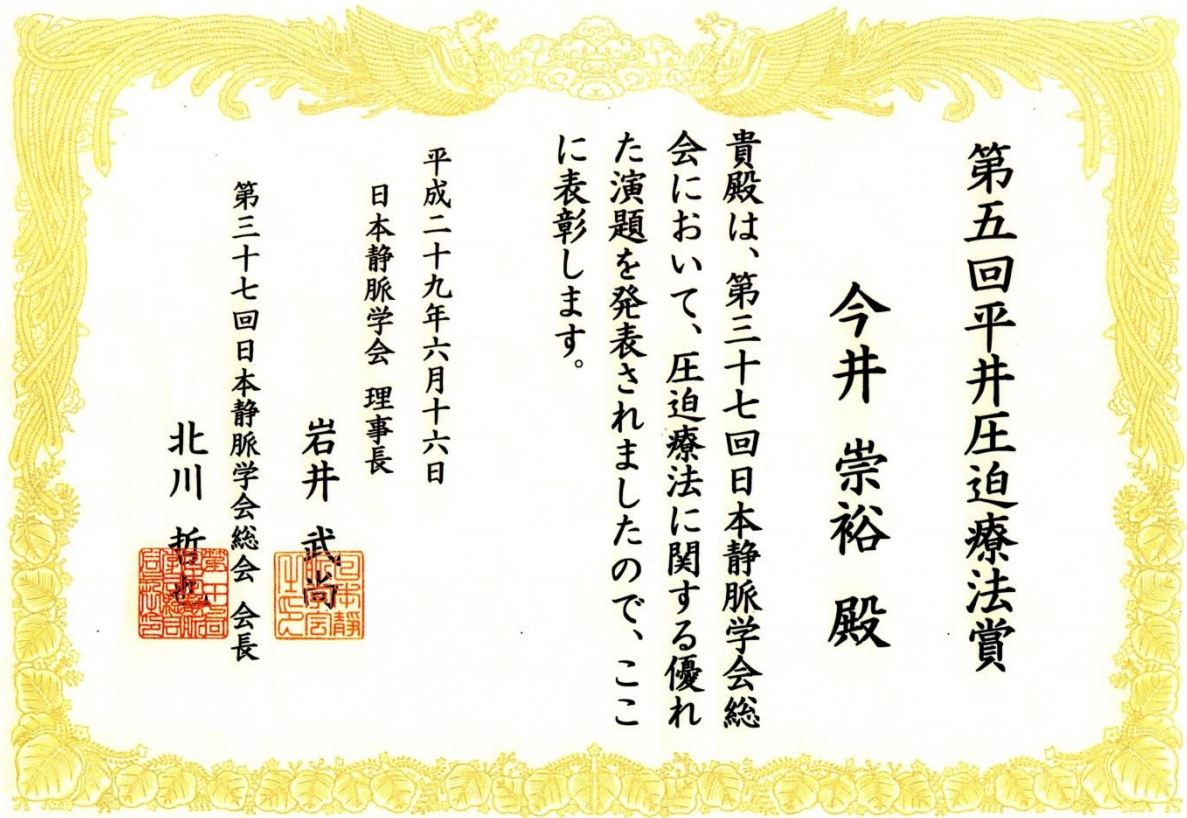 第五回平井圧迫療法賞
今井 崇裕 殿
貴殿は、第三十七回日本静脈学会総
会において、圧迫療法に関する優れ
た演題を発表されましたので、ここ
に表彰します。
平成二十九年六月十六日
日本静脈学会 理事長
岩井 武尚
第三十七回日本静脈学会総会 会長
北川 哲也